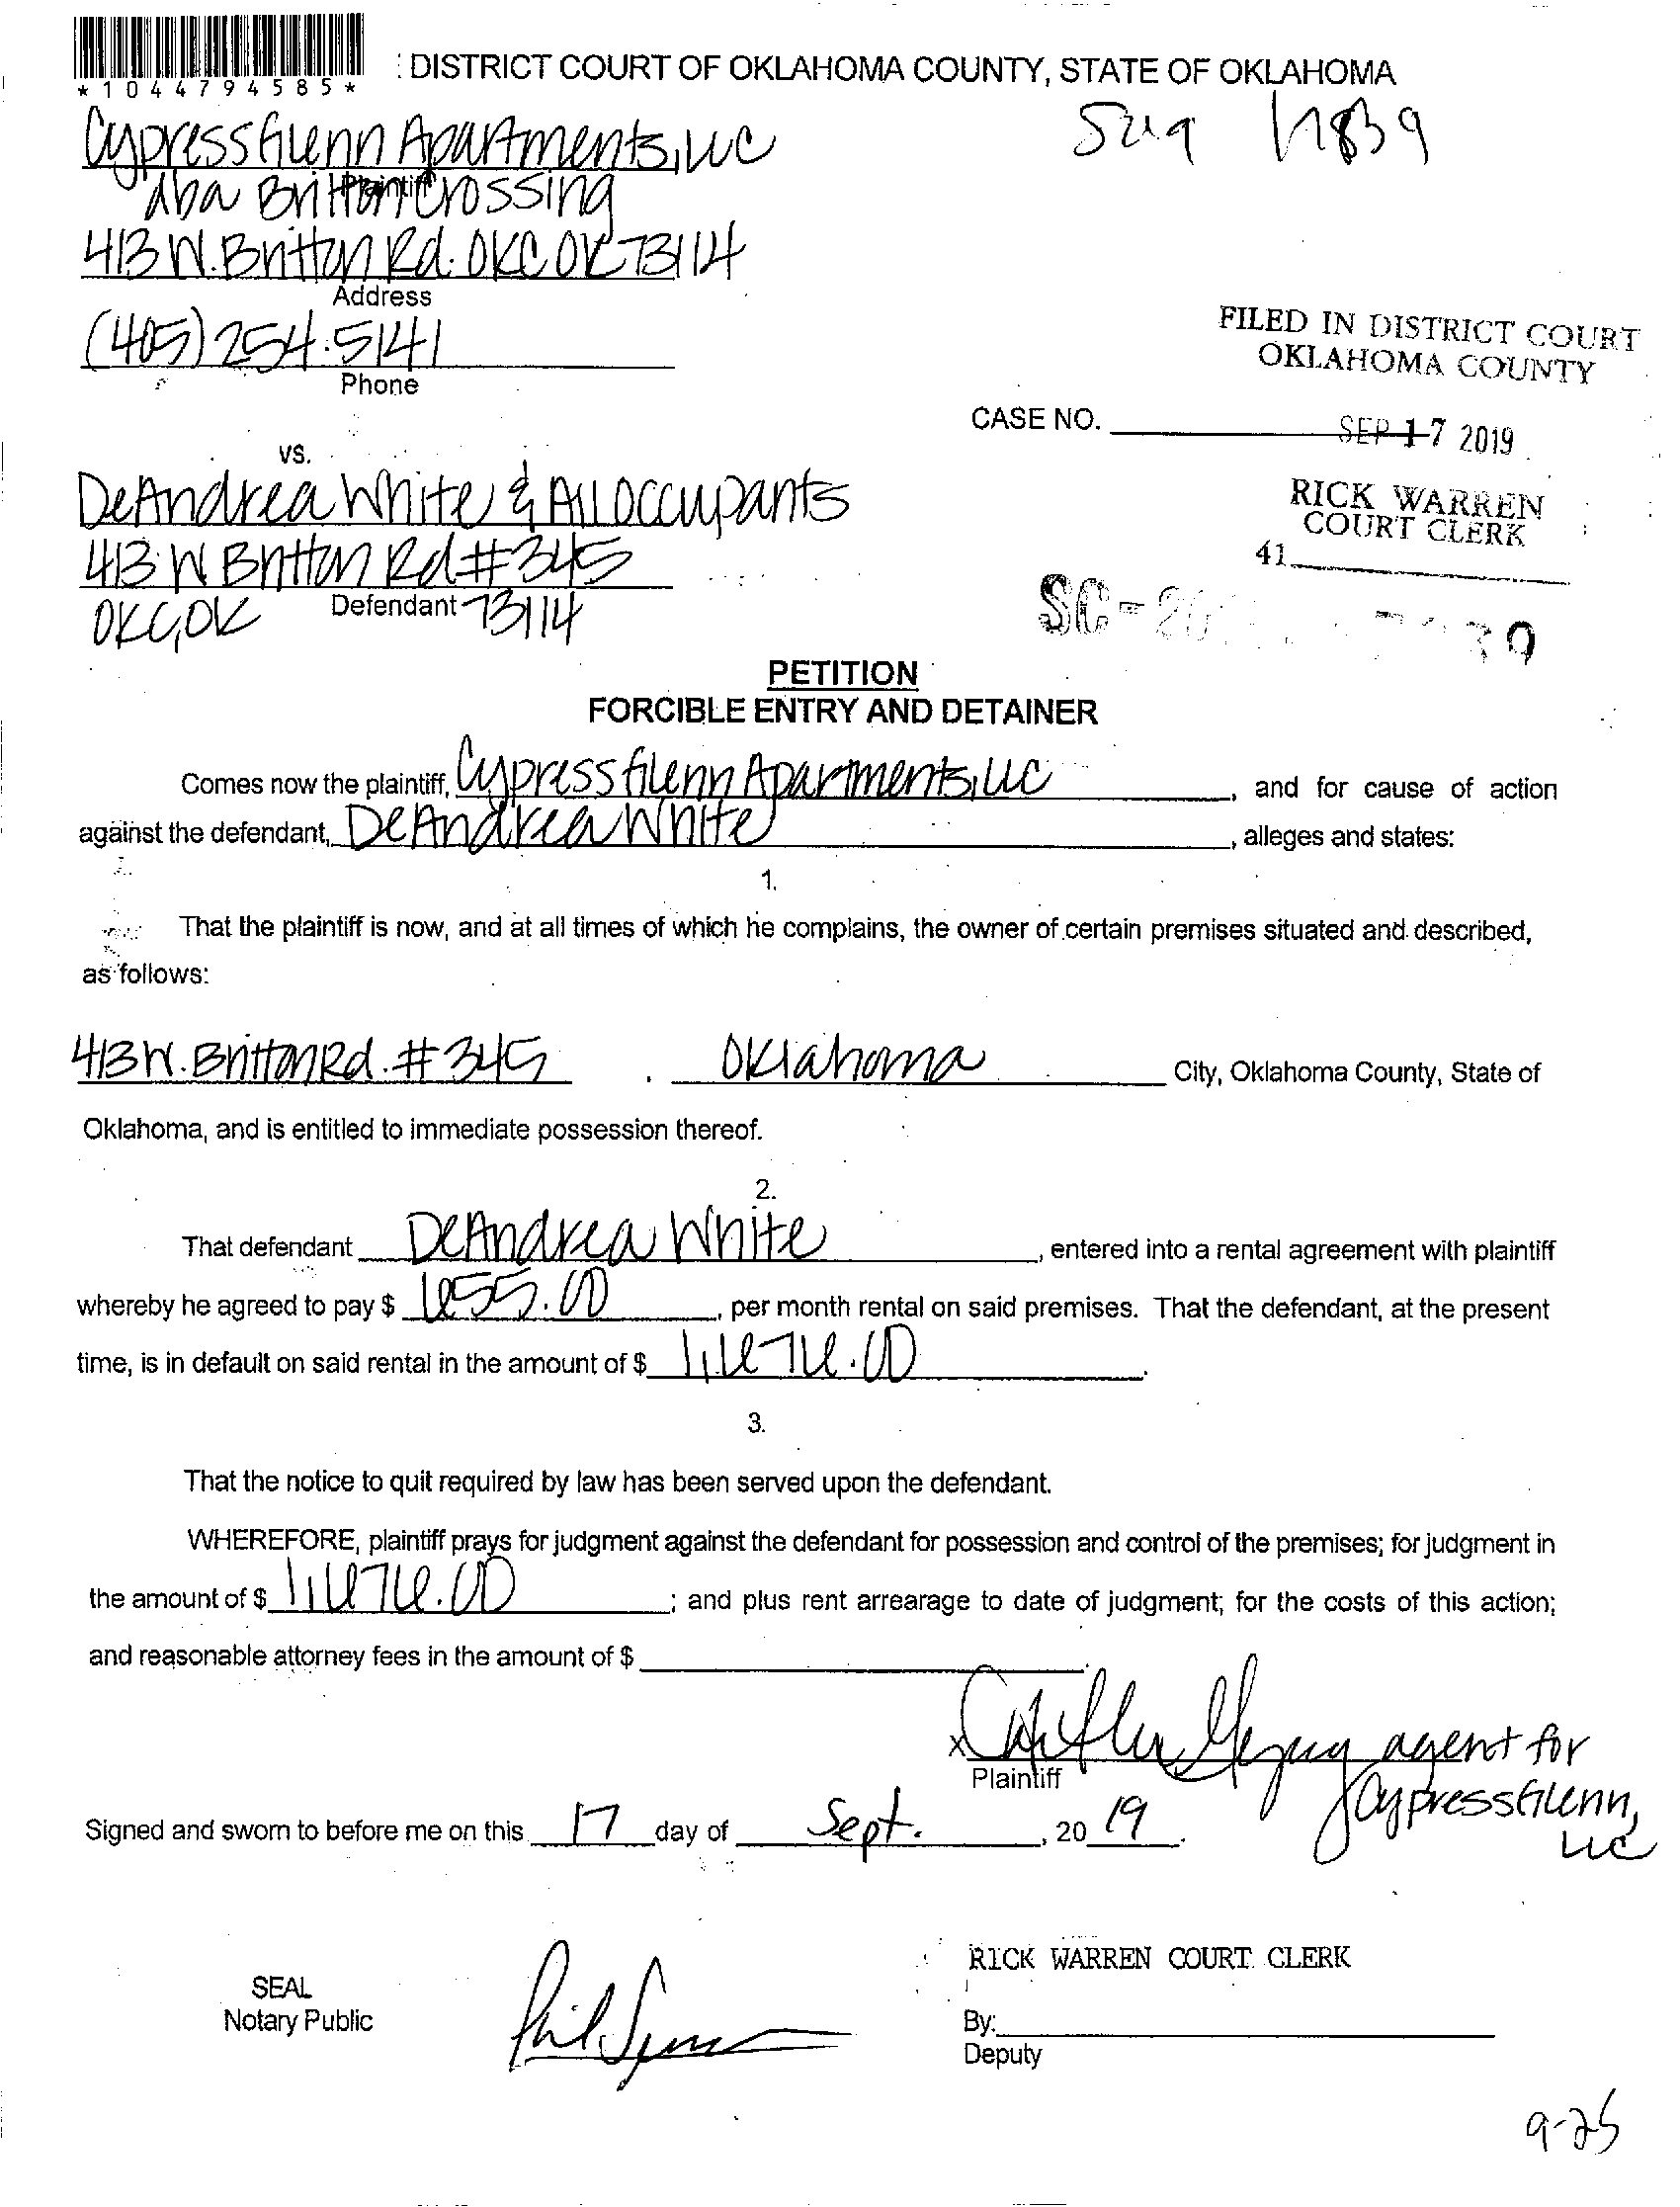 *1044794585*
DISTRICT COURT OF OKLAHOMA COUNTY, STATE OF OKLAHOMA
Cypress Glenn Apartments, LLC
dba Britton Crossing
Plaintiff
413 W. Britton Rd. OKC OK 73114
Address
(405) 254.5141
Phone
FILED IN DISTRICT COURT
OKLAHOMA COUNTY
CASE NO.
SEP 17 2019
vs.
DeAndrea White & All Occupants
RICK WARREN
COURT CLERK
413 W Britton Rd #345
41
Defendant
OKC, OK 73114
SC-20
PETITION
FORCIBLE ENTRY AND DETAINER
Comes now the plaintiff, Cypress Glenn Apartments, LLC, and for cause of action
against the defendant, DeAndrea White, alleges and states:
1.
That the plaintiff is now, and at all times of which he complains, the owner of certain premises situated and described,
as follows:
413 W. Britton Rd. #345, Oklahoma City, Oklahoma County, State of
Oklahoma, and is entitled to immediate possession thereof.
2.
That defendant DeAndrea White, entered into a rental agreement with plaintiff
whereby he agreed to pay $ 655.00, per month rental on said premises. That the defendant, at the present
time, is in default on said rental in the amount of $ 1,676.00.
3.
That the notice to quit required by law has been served upon the defendant.
WHEREFORE, plaintiff prays for judgment against the defendant for possession and control of the premises; for judgment in
the amount of $ 1,676.00; and plus rent arrearage to date of judgment; for the costs of this action;
and reasonable attorney fees in the amount of $
X agent for
Plaintiff
Cypress Glenn,
LLC
Signed and sworn to before me on this 17 day of Sept., 2019.
RICK WARREN COURT CLERK
SEAL
Notary Public
By:
Deputy
9-25